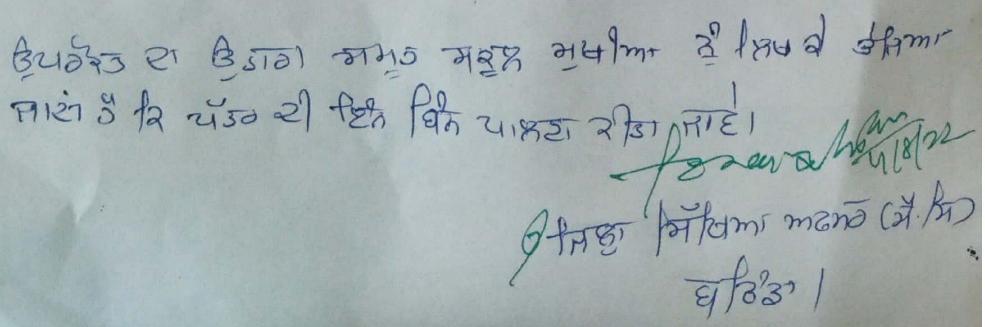 ਉਪਰੋਕਤ ਦਾ ਉਤਾਰਾ ਸਮੂਹ ਸਕੂਲ ਮੁਖੀਆ ਨੂੰ ਲਿਖ ਕੇ ਭੇਜਿਆ
ਜਾਂਦਾ ਹੈ ਕਿ ਪੱਤਰ ਦੀ ਇੰਨ ਬਿੰਨ ਪਾਲਣਾ ਕੀਤਾ ਜਾਵੇ।
4/8/22
ਜਿਲ੍ਹਾ ਸਿੱਖਿਆ ਅਫਸਰ (ਸੈ.ਸਿ)
ਬਠਿੰਡਾ।